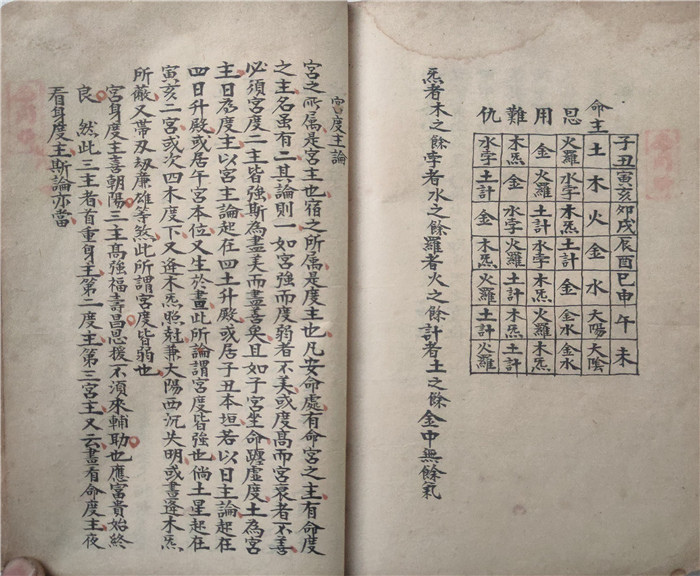 命主 恩 用 難 仇
子丑 寅亥 卯戌 辰酉 巳申 午 未
土 木 火 金 水 大陽 大陰
火羅 水孛 木炁 土計 金 金水 金水
金 火羅 土計 水孛 木炁 火羅 木炁
木炁 金 水孛 火羅 土計 木炁 土計
水孛 土計 金 木炁 火羅 土計 火羅
炁者木之餘孛者水之餘羅者火之餘計者土之餘金中無餘氣
宮度主論
宮之所属是宮主也宿之所属是度主也凡安命處有命宮之主有命度
之主名虽有二其論則一如宮強而度弱者不美或度高而宮衰者不善
必須宮度二主皆強斯為盡美而盡善矣且如子宮坐命躔虛度土為宮
主日為度主以宮主論起在四土升殿或居子丑本垣若以日主論起在
四日升殿或居午宮本位又生於晝此所論謂宮度皆強也倘土星起在
寅亥二宮或次四木度下又逢木炁照尅兼大陽西沉失明或晝逢木炁
所蔽又帶刃刼廉雄等煞此所謂宮度皆弱也
宮身度主喜朝陽三主髙強福壽昌恩援不須來輔助也應富貴始終
良 然此三主者首重身主第二度主第三宮主又云晝看命度主夜
看身度主斯論亦當